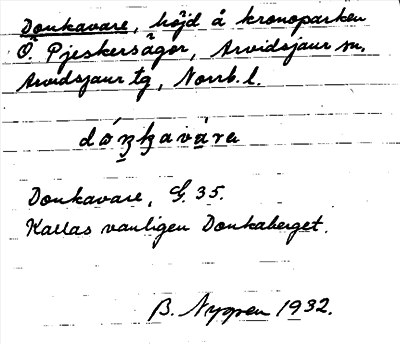 Donkavare, höjd å kronoparken
Ö. Pjeskersågor, Arvidsjaur sn.
Arvidsjaur tg, Norrb. l.
Donkavare, G. 35.
Kallas vanligen Donkaberget.
B. Nygren 1932.